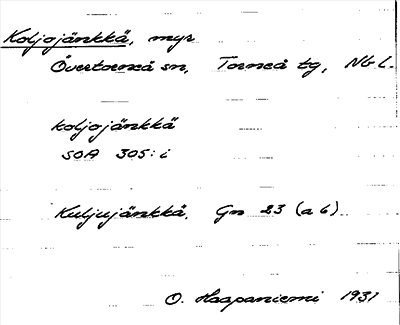 Koljojänkkä, myr
Övertorneå sn, Torneå tg, Nb L.
koljojänkkä
SOA 305: i
Kuljujänkkä. Gn 23 (a 6)
O. Haapaniemi 1931